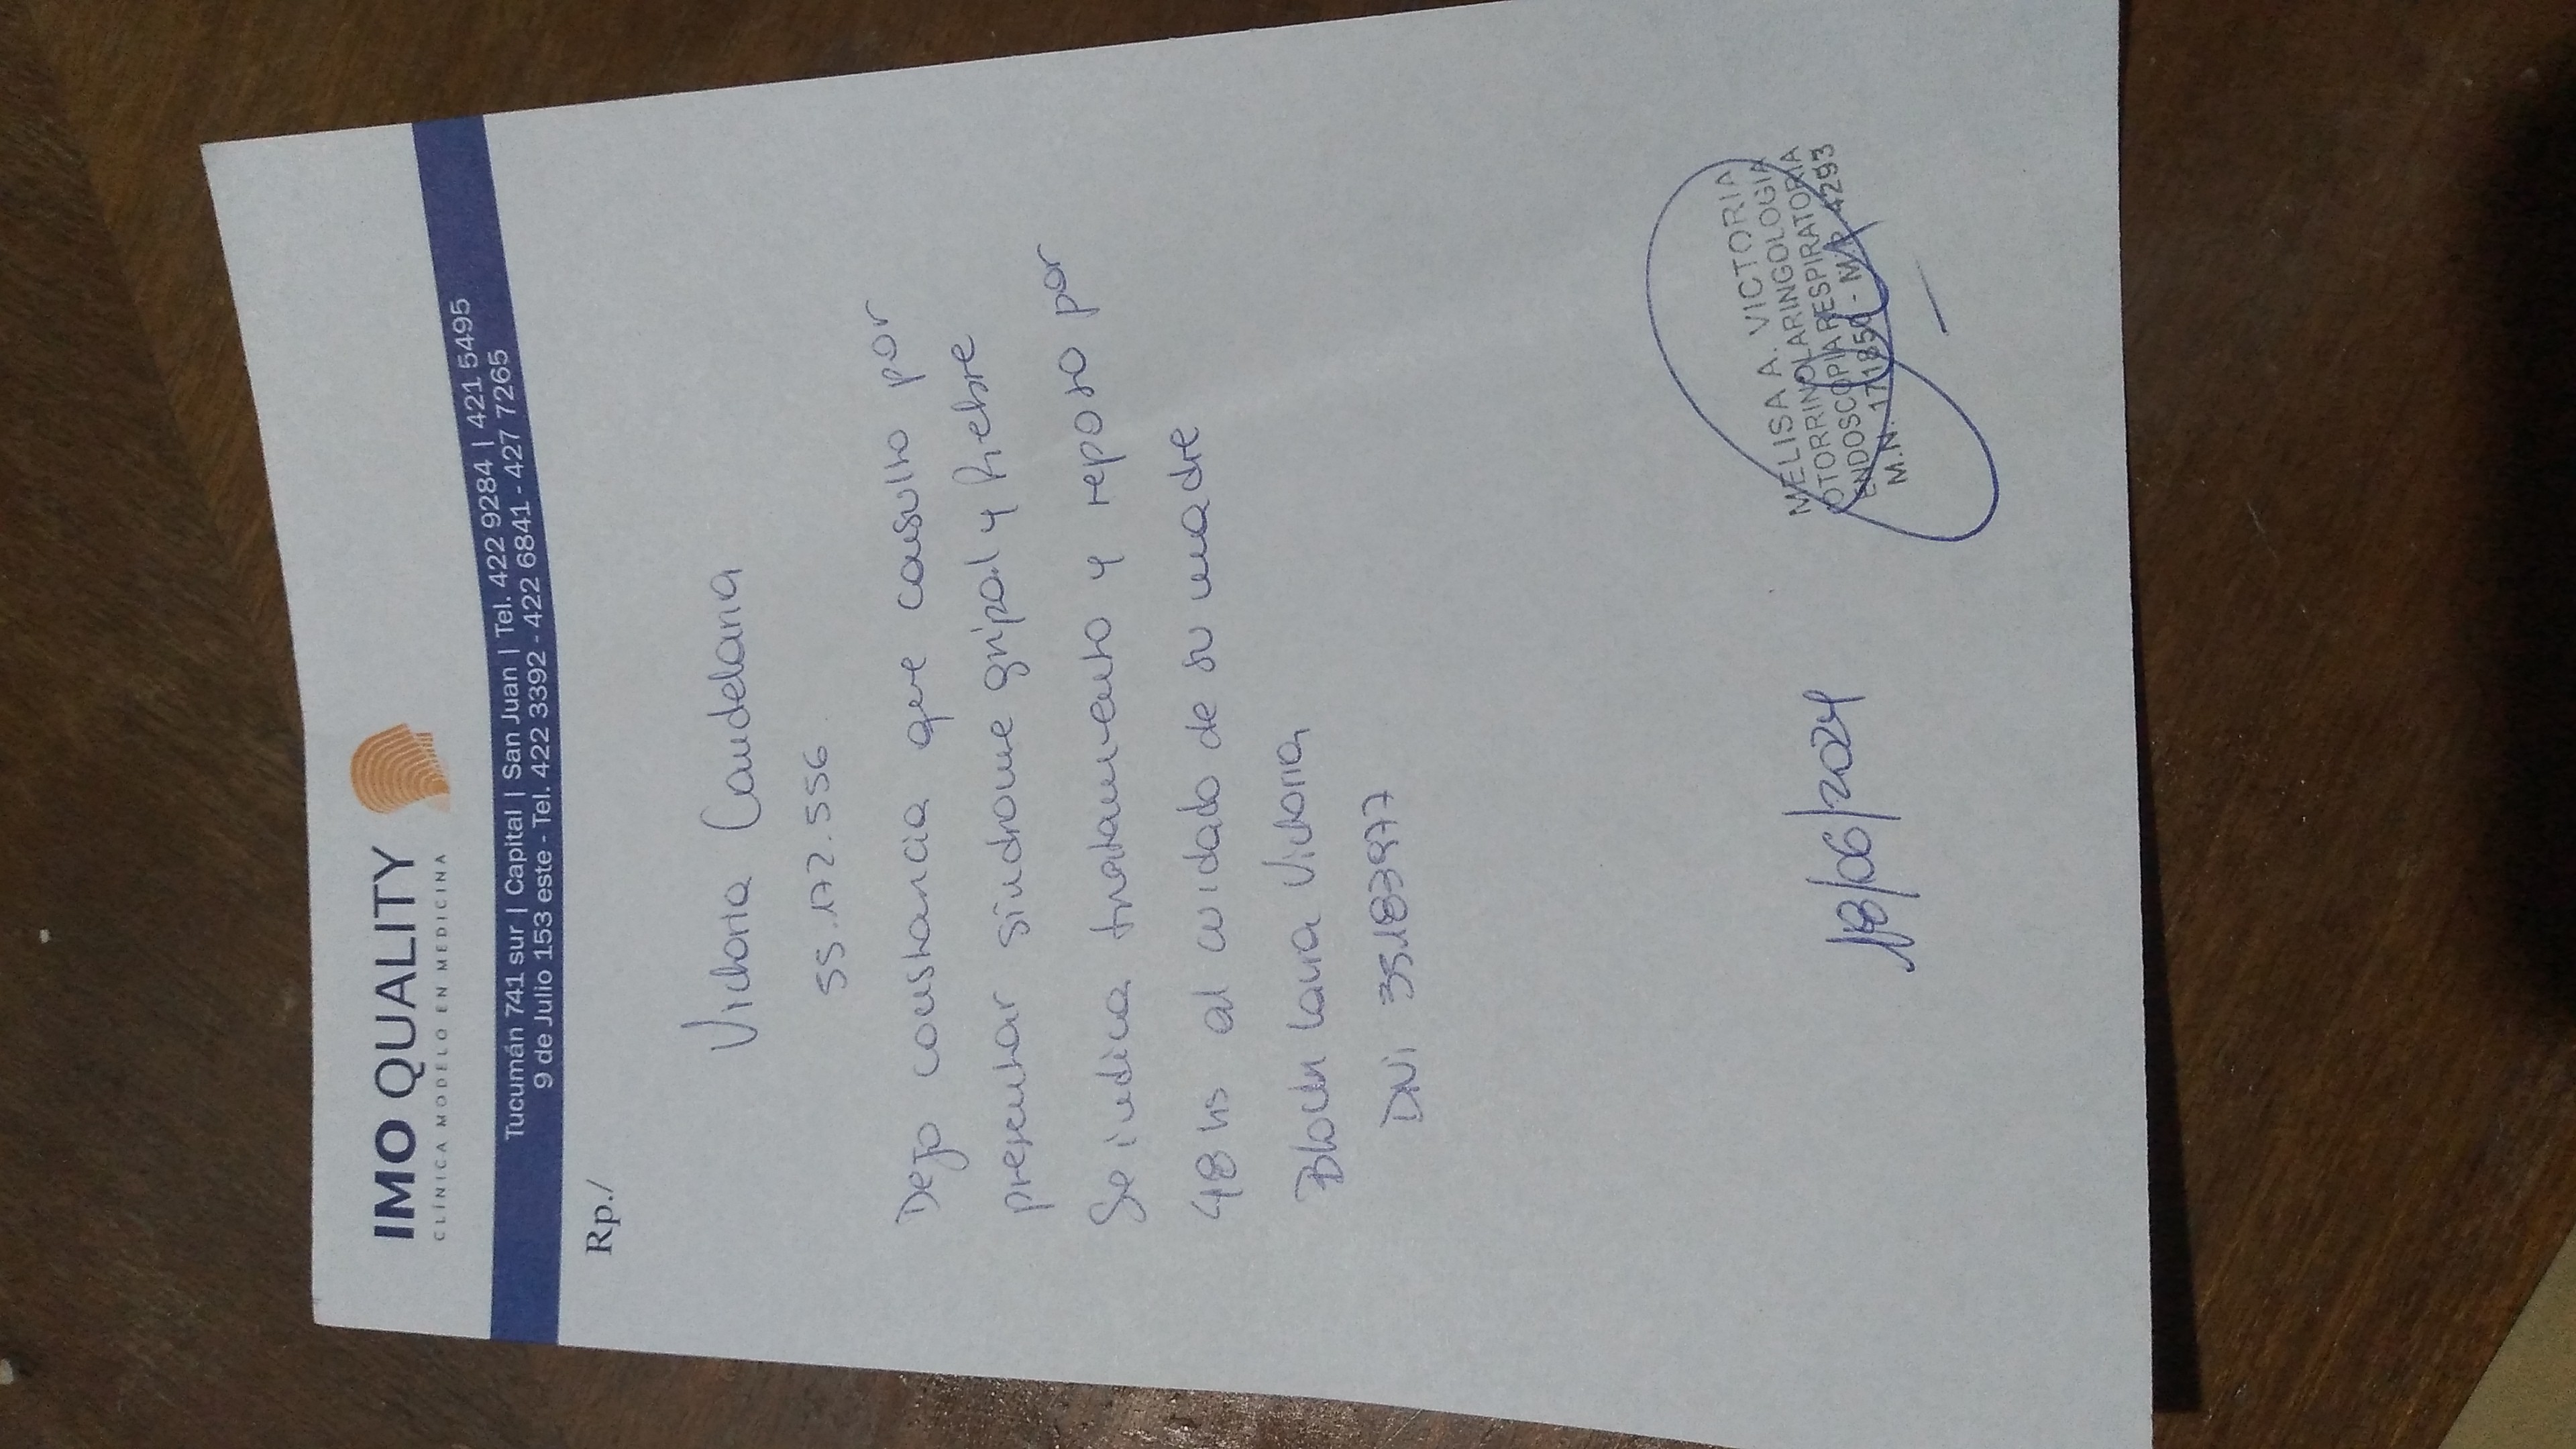 IMO QUALITY
CLÍNICA MODELO EN MEDICINA
Tucumán 741 sur | Capital | San Juan | Tel. 422 9284 | 421 5495
9 de Julio 153 este - Tel. 422 3392 - 422 6841 - 427 7265
Rp./
Victoria Candelaria
55.172.556
Dejo constancia que consulto por
presentar sindrome gripal y fiebre
Se indica tratamiento y reposo por
48 hs al cuidado de su madre
Bloch Laura Victoria
DNI 35.183977
MELISA A. VICTORIA
OTORRINOLARINGOLOGIA
ENDOSCOPIA RESPIRATORIA
M.N. 171850 - M.P. 4293
18/06/2024